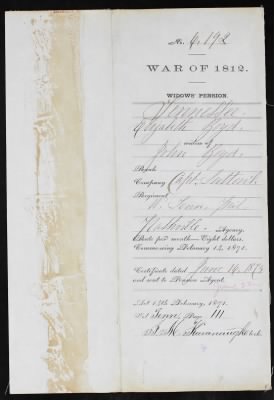 No. 6.192
WAR OF 1812.
WIDOWS' PENSION.
Tennessee.
Elizabeth Byrd,
widow of
John Byrd,
Rank
Company Capt.
Regiment
W. Tenn. Mil.
Nashville. Agency.
Rate per month—Eight dollars.
Commencing February 14, 1871.
Certificate dated June 14, 187
and sent to Pension Agent.
Act 14th February, 1871.
Vol Tenn, Page 111
Clerk.